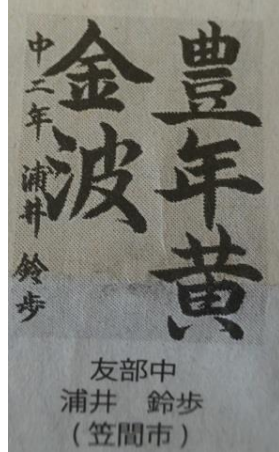 豊年黄
金波
中二年 浦井 鈴歩
友部中
浦井 鈴歩
(笠間市)